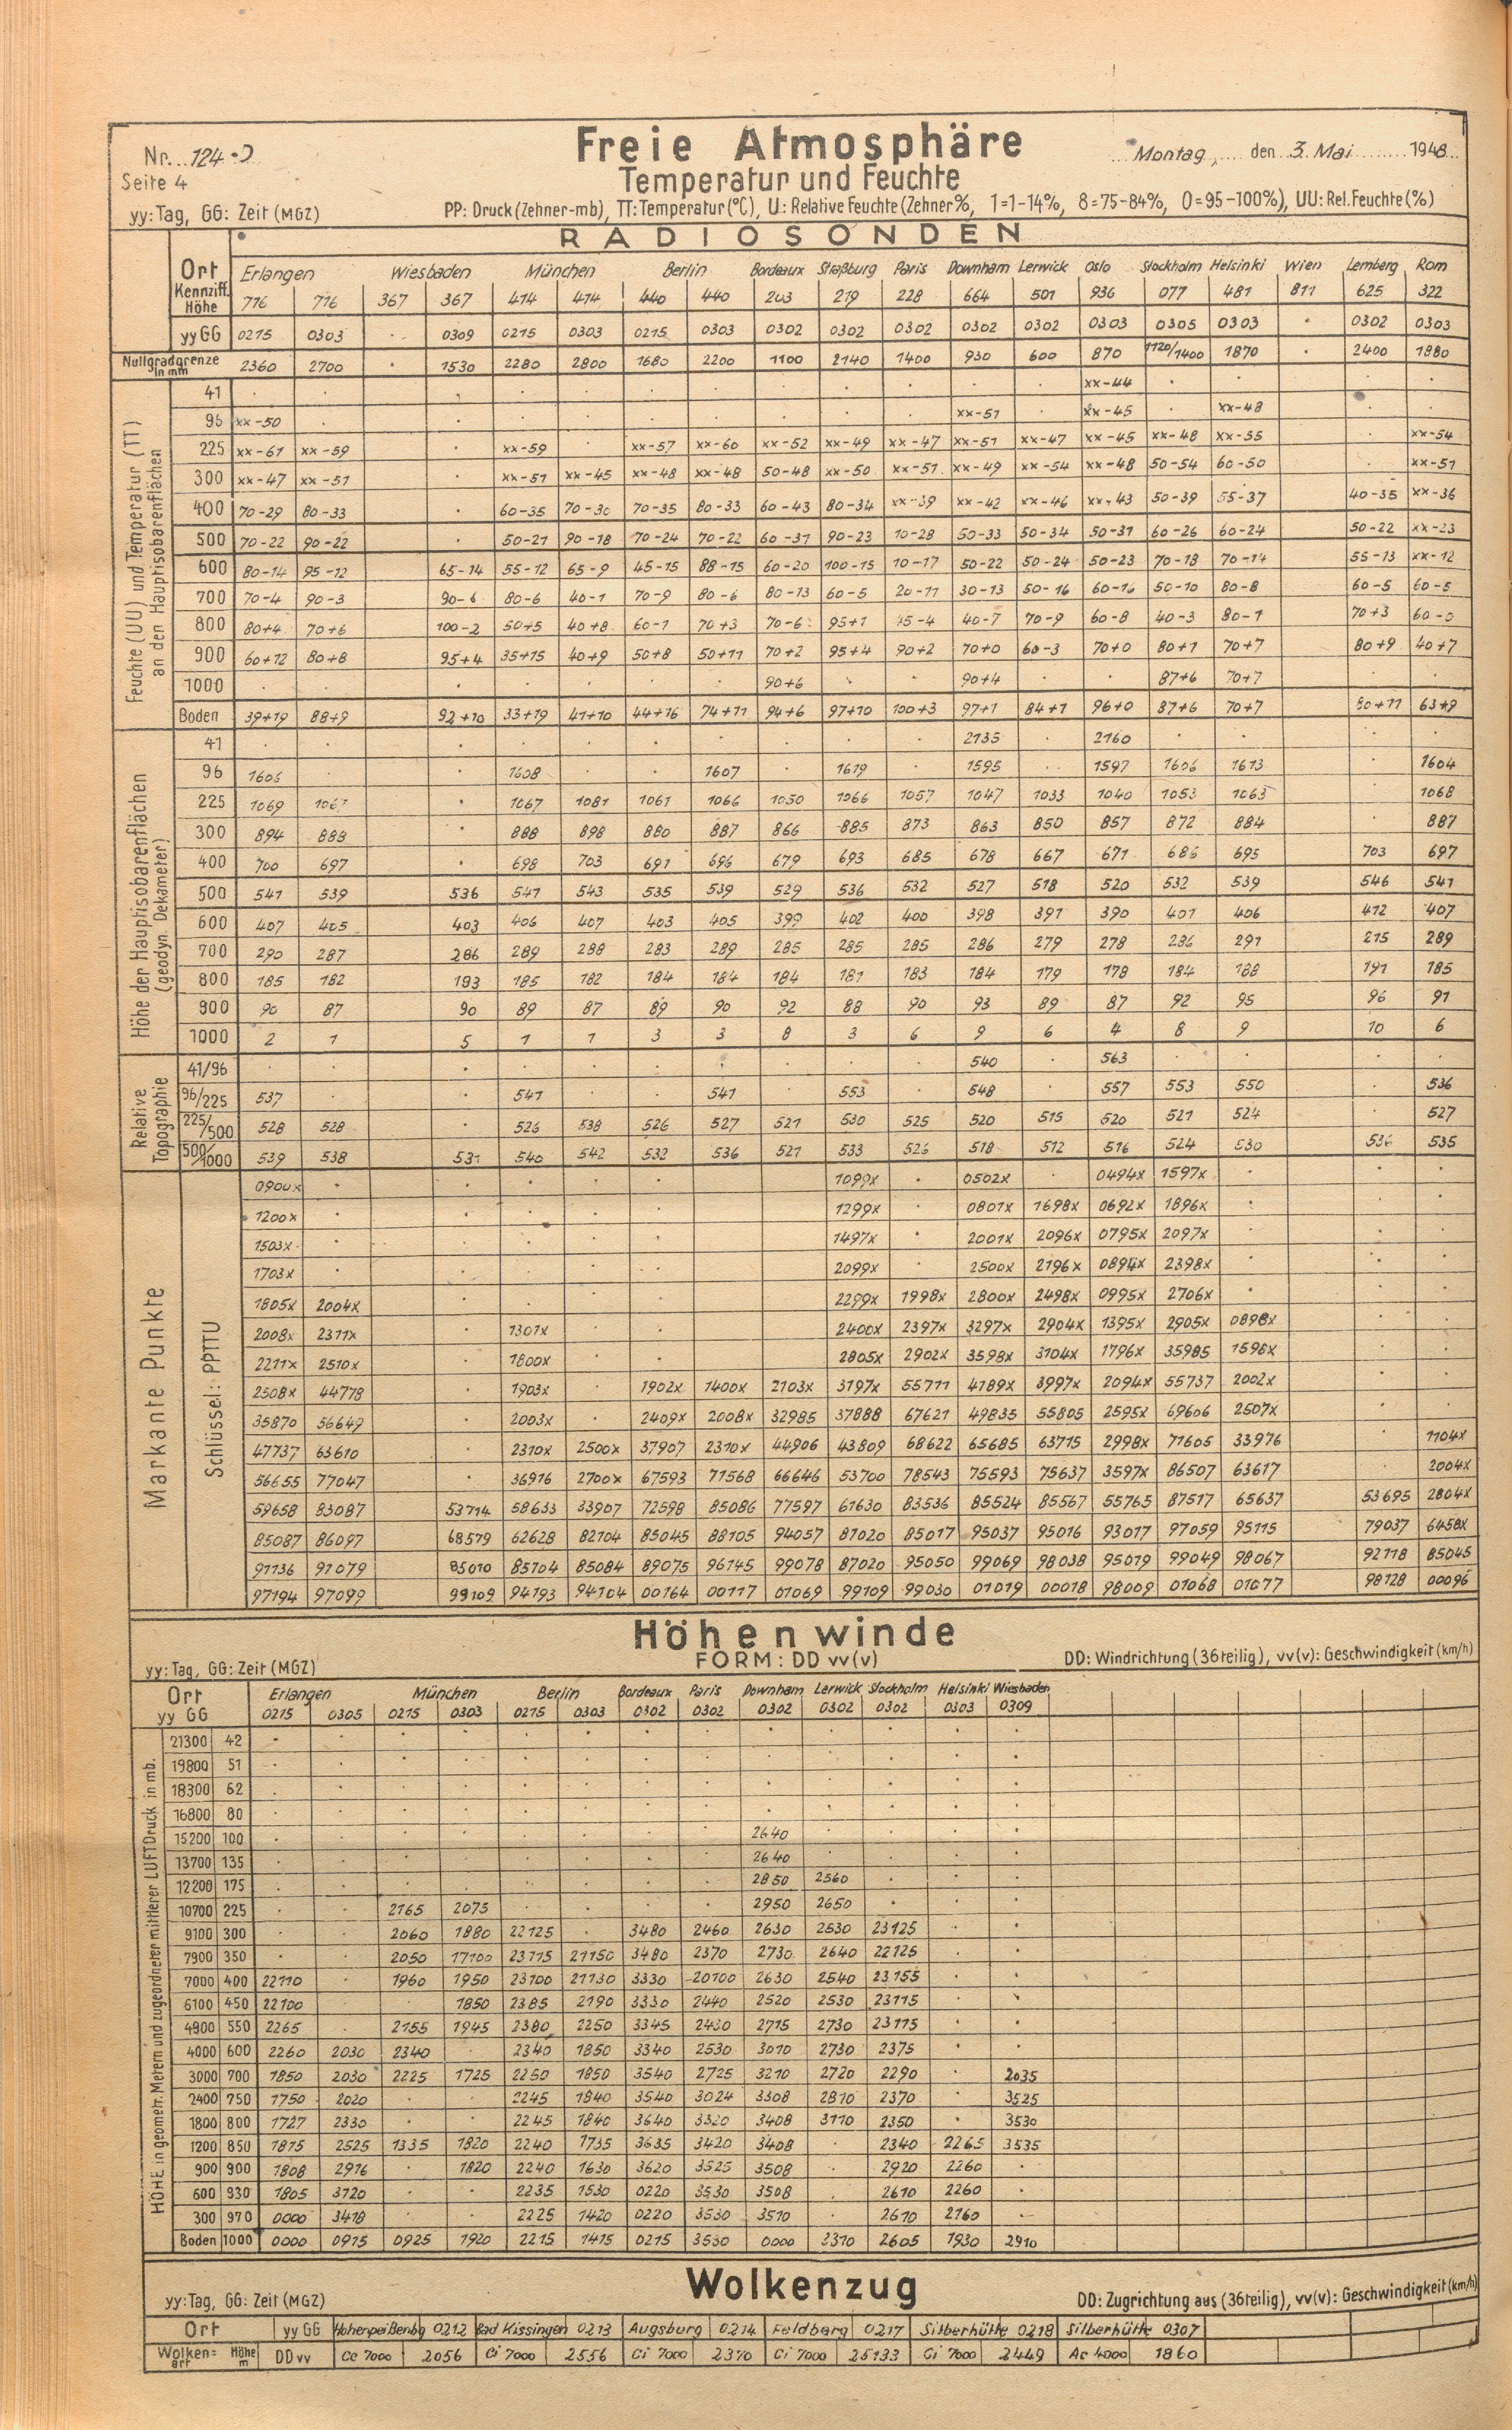 Freie Atmosphäre
Nr. 124 Montag, den 3. Mai 1948
Seite 4 Temperatur und Feuchte
yy: Tag, GG: Zeit (MGZ) PP: Druck (Zehner-mb), TT: Temperatur (°C), U: Relative Feuchte (Zehner %, 1=1-14%, 8=75-84%, 0=95-100%), UU: Rel. Feuchte (%)
RADIOSONDEN
Ort Erlangen Wiesbaden München Berlin Bordeaux Straßburg Paris Downham Lerwick Oslo Stockholm Helsinki Wien Lemberg Rom
Kennziff. Höhe 716 716 367 367 414 414 440 440 203 219 228 664 501 936 077 481 811 625 322
yy GG 0215 0303 . 0309 0215 0303 0215 0303 0302 0302 0302 0302 0302 0303 0305 0303 . 0302 0303
Nullgradgrenze in mm 2360 2700 . 1530 2280 2800 1680 2200 1100 2140 1400 930 600 870 1120/1400 1870 . 2400 1880
Feuchte (UU) und Temperatur (TT) an den Hauptisobarenflächen
41 xx-44
96 xx-50 xx-51 xx-45 xx-48
225 xx-61 xx-59 xx-59 xx-57 xx-60 xx-52 xx-49 xx-47 xx-51 xx-47 xx-45 xx-48 xx-55 xx-54
300 xx-47 xx-51 xx-51 xx-45 xx-48 xx-48 50-48 xx-50 xx-51 xx-49 xx-54 xx-48 50-54 60-50 xx-51
400 70-29 80-33 60-35 70-30 70-35 80-33 60-43 80-34 xx-39 xx-42 xx-46 xx-43 50-39 55-37 40-35 xx-36
500 70-22 90-22 50-21 90-18 70-24 70-22 60-31 90-23 10-28 50-33 50-34 50-31 60-26 60-24 50-22 xx-23
600 80-14 95-12 65-14 55-12 65-9 45-15 88-15 60-20 100-15 10-17 50-22 50-24 50-23 70-18 70-14 55-13 xx-12
700 70-4 90-3 90-6 80-6 40-1 70-9 80-6 80-13 60-5 20-11 30-13 50-16 60-16 50-10 80-8 60-5 60-5
800 80+4 70+6 100-2 50+5 40+8 60-1 70+3 70-6 95+1 45-4 40-7 70-9 60-8 40-3 80-1 70+3 60-0
900 60+12 80+8 95+4 35+15 40+9 50+8 50+11 70+2 95+4 90+2 70+0 60-3 70+0 80+1 70+7 80+9 40+7
1000 90+6 90+4 87+6 70+7
Boden 39+19 88+9 92+10 33+19 41+10 44+16 74+11 94+6 97+10 100+3 97+1 84+1 96+0 87+6 70+7 80+11 63+9
Höhe der Hauptisobarenflächen (geodyn. Dekameter)
41 2135 2160
96 1606 1608 1607 1619 1595 1597 1606 1613 1604
225 1069 1067 1067 1081 1061 1066 1050 1066 1057 1047 1033 1040 1053 1063 1068
300 894 888 888 898 880 887 866 885 873 863 850 857 872 884 887
400 700 697 698 703 691 696 679 693 685 678 667 671 686 695 703 697
500 541 539 536 541 543 535 539 529 536 532 527 518 520 532 539 546 541
600 407 405 403 406 407 403 405 399 402 400 398 391 390 401 406 412 407
700 290 287 286 289 288 283 289 285 285 285 286 279 278 286 291 215 289
800 185 182 193 185 182 184 184 184 181 183 184 179 178 184 188 191 185
900 90 87 90 89 87 89 90 92 88 90 93 89 87 92 95 96 91
1000 2 1 5 1 1 3 3 8 3 6 9 6 4 8 9 10 6
Relative Topographie
41/96 540 563
96/225 537 541 541 553 548 557 553 550 536
225/500 528 528 526 538 526 527 521 530 525 520 515 520 521 524 527
500/1000 539 538 531 540 542 532 536 521 533 526 518 512 516 524 530 536 535
Markante Punkte
Schlüssel: PPTTU
0900x 1099x 0502x 0494x 1597x
1200x 1299x 0801x 1698x 0692x 1896x
1503x 1497x 2001x 2096x 0795x 2097x
1703x 2099x 2500x 2196x 0894x 2398x
1805x 2004x 2299x 1998x 2800x 2498x 0995x 2706x
2008x 2311x 1301x 2400x 2397x 3297x 2904x 1395x 2905x 0898x
2211x 2510x 1800x 2805x 2902x 3598x 3104x 1796x 35985 1598x
2508x 44778 1903x 1902x 1400x 2103x 3197x 55711 4189x 3997x 2094x 55737 2002x
35870 56649 2003x 2409x 2008x 32985 37888 67621 49835 55805 2595x 69606 2507x
47737 63610 2310x 2500x 37907 2310x 44906 43809 68622 65685 63715 2998x 71605 33976 1104x
56655 77047 36916 2700x 67593 71568 66646 53700 78543 75593 75637 3597x 86507 63617 2004x
59658 83087 53714 58633 33907 72598 85086 77597 61630 83536 85524 85567 55765 87517 65637 53695 2804x
85087 86097 68579 62628 82104 85045 88105 94057 87020 85017 95037 95016 93017 97059 95115 79037 6458x
91136 91079 85010 85704 85084 89075 96145 99078 87020 95050 99069 98038 95019 99049 98067 92118 85045
97194 97099 99109 94193 94104 00164 00117 01069 99109 99030 01019 00018 98009 01068 01077 98128 00096
Höhenwinde
yy: Tag, GG: Zeit (MGZ) FORM: DD vv(v) DD: Windrichtung (36teilig), vv(v): Geschwindigkeit (km/h)
Ort Erlangen München Berlin Bordeaux Paris Downham Lerwick Stockholm Helsinki Wiesbaden
yy GG 0215 0305 0215 0303 0215 0303 0302 0302 0302 0302 0302 0303 0309
HÖHE in geometr. Metern und zugeordneter mittlerer LUFTDruck in mb.
21300 42
19800 51
18300 62
16800 80
15200 100 2640
13700 135 2640
12200 175 2850 2560
10700 225 2165 2075 2950 2650
9100 300 2060 1880 22125 3480 2460 2630 2530 23125
7900 350 2050 17100 23115 21150 3480 2370 2730 2640 22125
7000 400 22110 1960 1950 23100 21130 3330 20100 2630 2540 23155
6100 450 22100 1850 2385 2190 3330 2440 2520 2530 23115
4900 550 2265 2155 1945 2380 2250 3345 2430 2715 2730 23115
4000 600 2260 2030 2340 2340 1850 3340 2530 3010 2730 2375
3000 700 1850 2030 2225 1725 2250 1850 3540 2725 3210 2720 2290 2035
2400 750 1750 2020 2245 1840 3540 3024 3308 2810 2370 3525
1800 800 1727 2330 2245 1840 3640 3320 3408 3110 2350 3530
1200 850 1815 2525 1335 1820 2240 1735 3635 3420 3408 2340 2265 3535
900 900 1808 2916 1820 2240 1630 3620 3525 3508 2920 2260
600 930 1805 3120 2235 1530 0220 3530 3508 2610 2260
300 970 0000 3418 2225 1420 0220 3530 3510 2610 2160
Boden 1000 0000 0915 0925 1920 2215 1415 0215 3530 0000 3310 2605 1930 2910
Wolkenzug
yy: Tag, GG: Zeit (MGZ) DD: Zugrichtung aus (36teilig), vv(v): Geschwindigkeit (km/h)
Ort yy GG Hohenpeißenbg 0212 Bad Kissingen 0213 Augsburg 0214 Feldberg 0217 Silberhütte 0218 Silberhütte 0307
Wolken=art Höhe m DD vv Cc 7000 2056 Ci 7000 2556 Ci 7000 2370 Ci 7000 25133 Ci 7000 2449 Ac 4000 1860